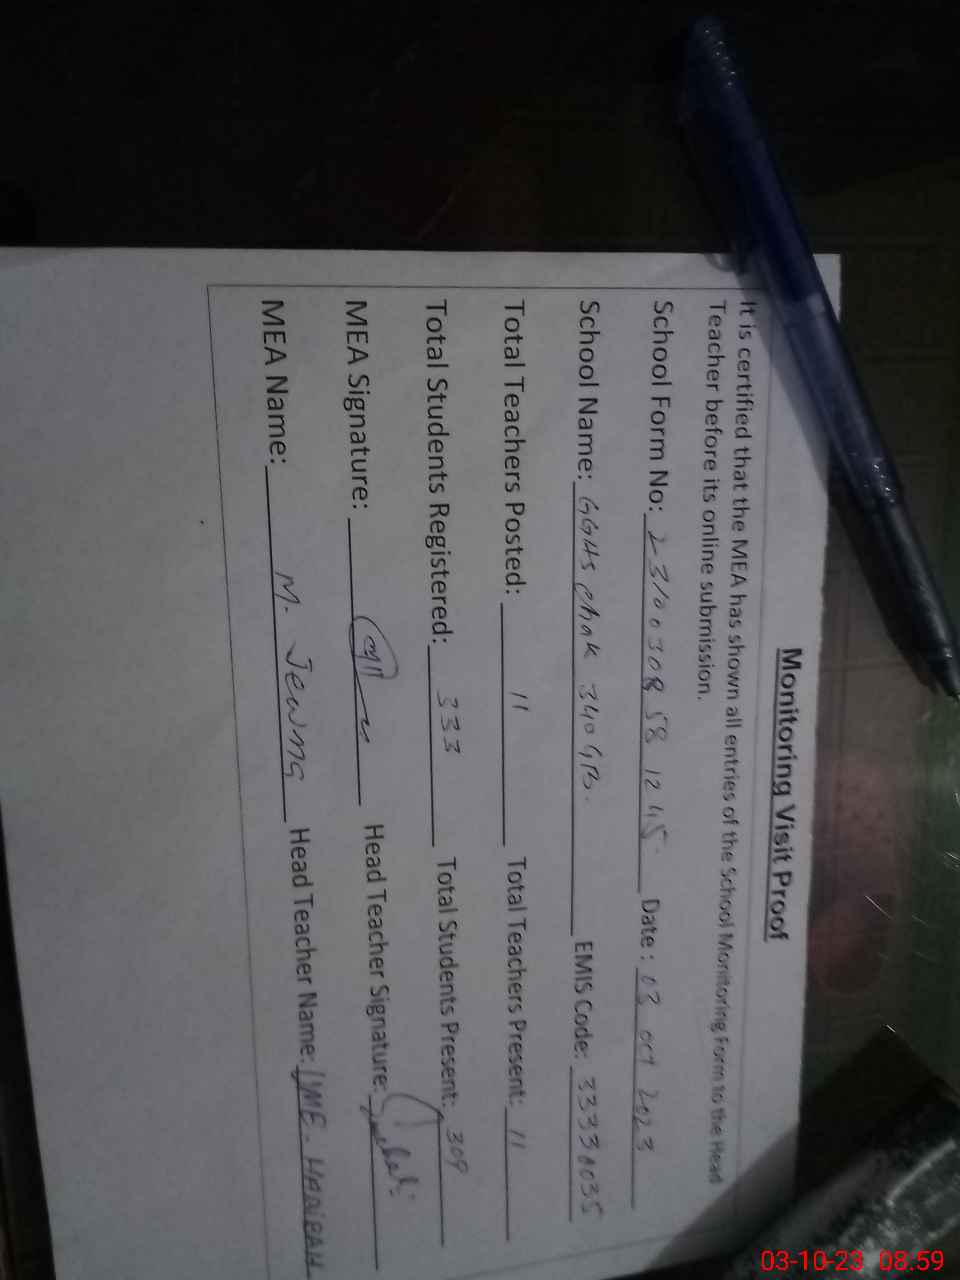 Monitoring Visit Proof
It is certified that the MEA has shown all entries of the School Monitoring Form to the Head
Teacher before its online submission.
School Form No: 23100308 58 1245 Date: 03 oct 2023
School Name: GGHS chak 340 GB. EMIS Code: 33330035
Total Teachers Posted: 11 Total Teachers Present: 11
Total Students Registered: 333 Total Students Present: 309
MEA Signature: Head Teacher Signature:
MEA Name: M. Head Teacher Name:
03-10-23 08.59